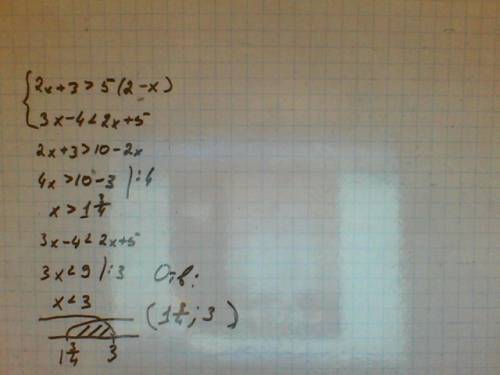 { 2x+3>5(2-x)
3x-4<2x+5
2x+3>10-2x
4x>10-3 ):4
x>1 3/4
3x-4<2x+5
3x<9 ):3
x<3
Отв:
(1 3/4; 3)
1 3/4 3